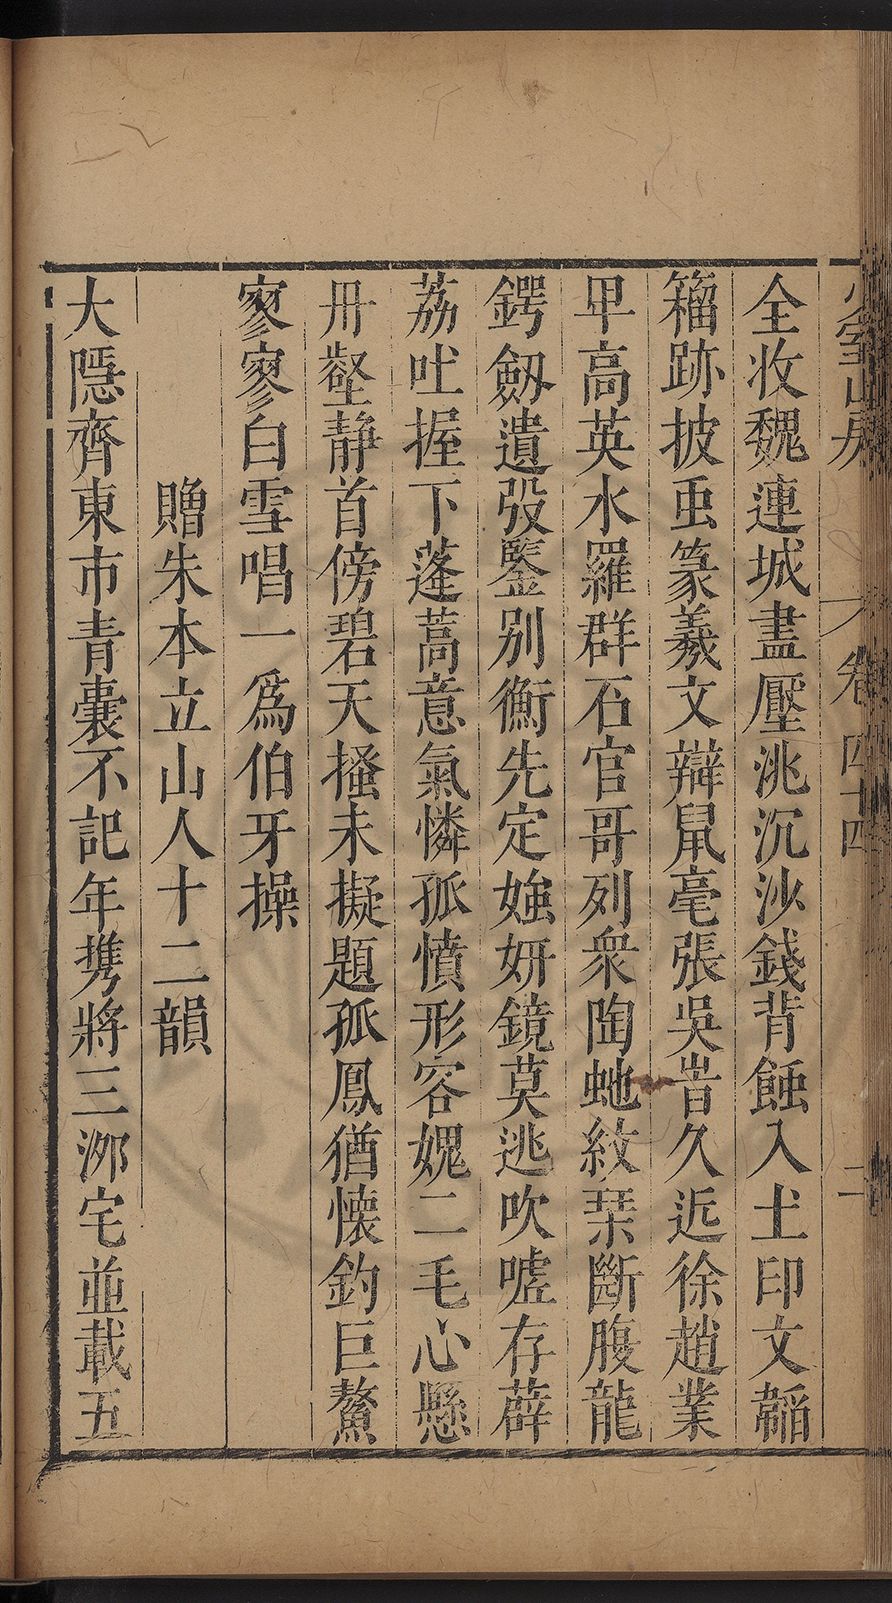 少室山房 卷四十四 二
全收魏連城盡壓洮沉沙錢背蝕入土印文韜
籀跡披䖝篆羲文辯鼠毫張吳昔久近徐趙業
早高英水羅群石官哥列衆陶虵紋琹斷腹龍
鍔劔遺弢鑒别衡先定媸妍鏡莫逃吹噓存薜
荔吐握下蓬蒿意氣憐孤憤形容媿二毛心懸
丹壑静首傍碧天搔未擬題孤鳳猶懐釣巨鰲
寥寥白雪唱一爲伯牙操
贈朱本立山人十二韻
大隠齊東市青囊不記年擕將三泖宅並載五